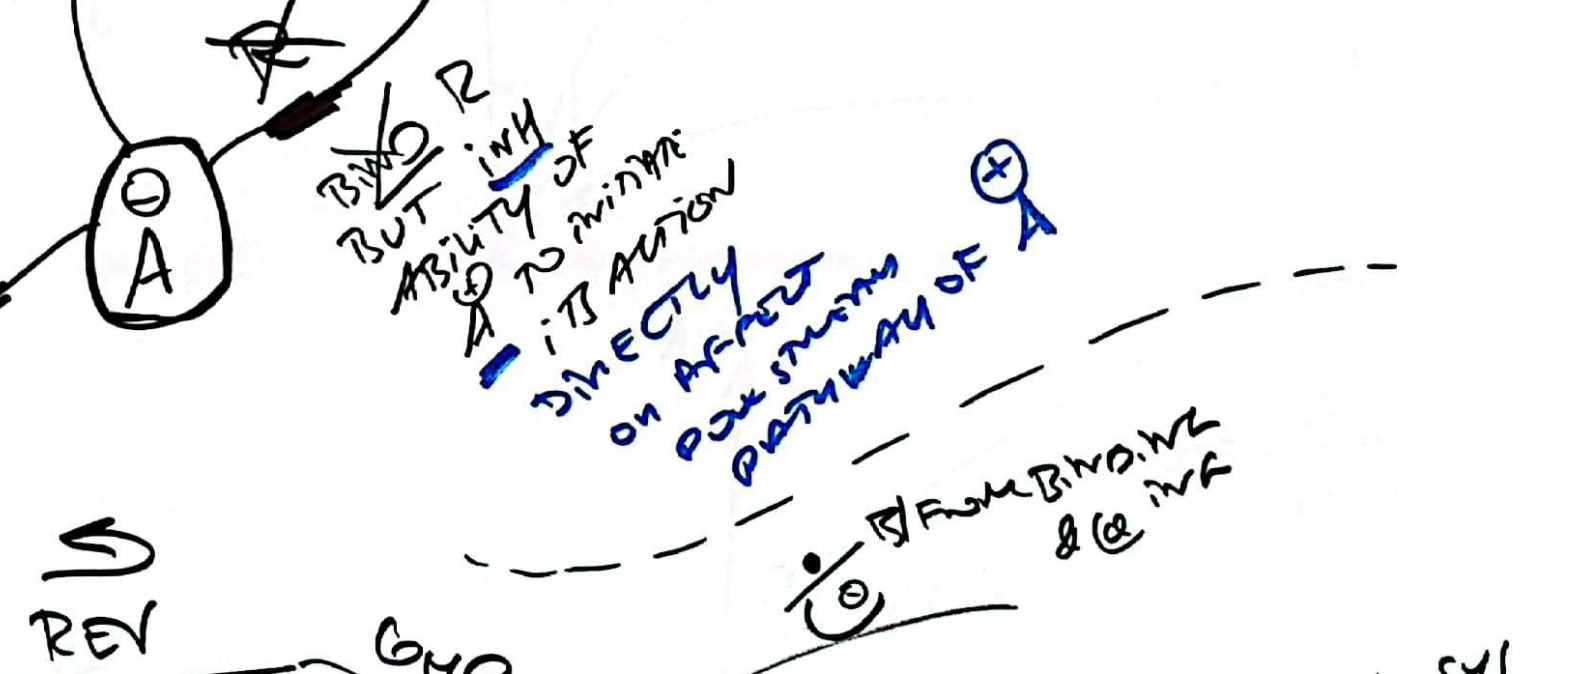 R
⊖
A
BIND R
BUT INH OF
ABILITY OF
⊕
A TO INITIATE
ITS ACTION
DIRECTLY
OR AFFECT
DOWNSTREAM
PATHWAY OF A
⊕
BINDING
& @ INH
⊖
REV